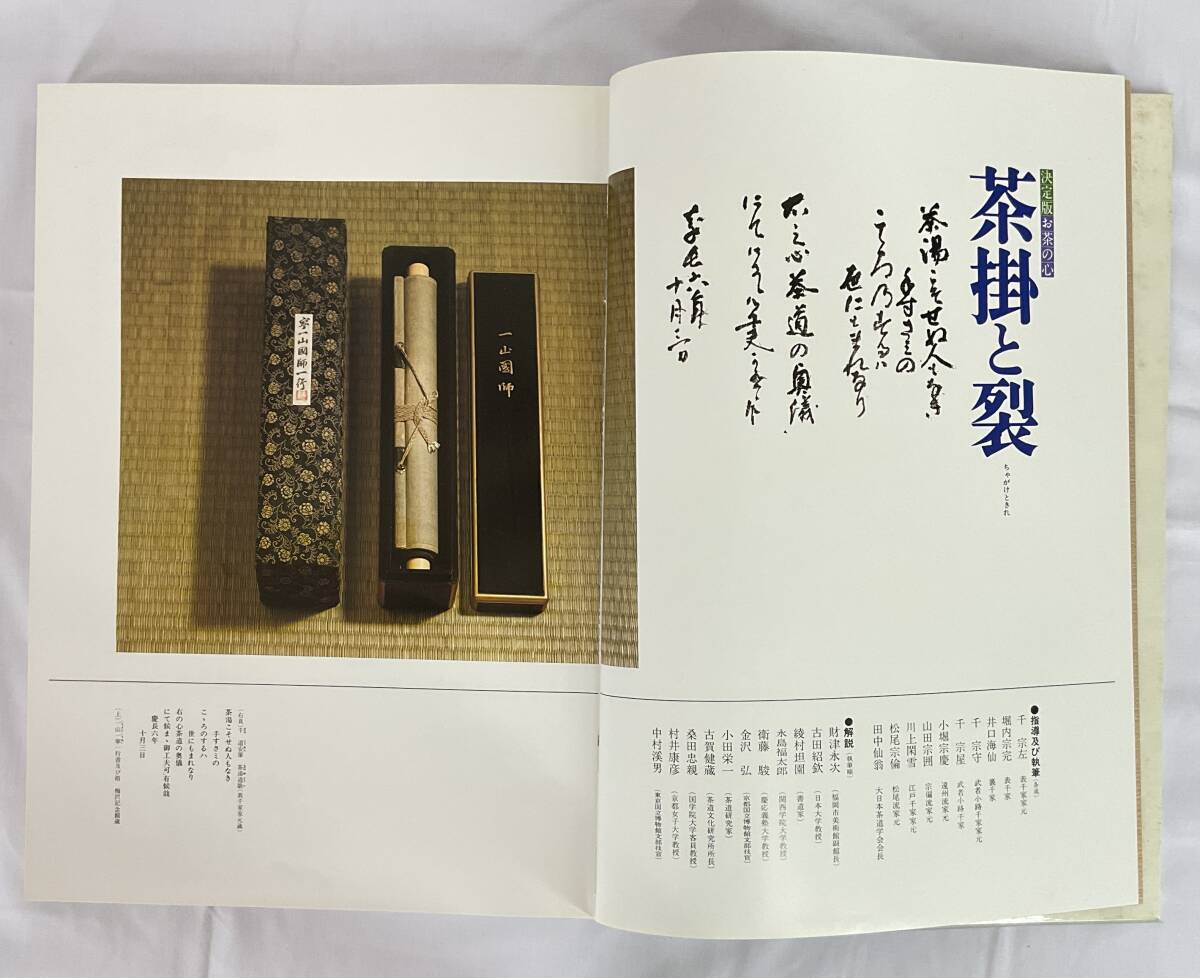 決定版 お茶の心
茶掛と裂
ちゃがけときれ
茶湯こそせぬ人もなき
手すさミの
こゝろのするハ
世にもまれなり
右之心茶道の奥儀
にて候
慶長六年
十月三日
●指導及び執筆
千 宗左 表千家家元
堀内宗完 表千家
井口海仙 裏千家
千 宗守 武者小路千家家元
千 宗屋 武者小路千家
小堀宗慶 遠州流家元
山田宗囲 宗徧流家元
川上閑雪 江戸千家家元
松尾宗倫 松尾流家元
田中仙翁 大日本茶道学会会長
●解説(執筆順)
財津永次(福岡市美術館副館長)
古田紹欽(日本大学教授)
綾村坦園(書道家)
永島福太郎(関西学院大学教授)
衛藤 駿(慶応義塾大学教授)
金沢 弘(京都国立博物館文部技官)
小田栄一(茶道研究家)
古賀健蔵(茶道文化研究所所長)
桑田忠親(国学院大学客員教授)
村井康彦(京都女子大学教授)
中村溪男(東京国立博物館文部技官)
寧一山國師一行
一山國師
茶湯こそせぬ人もなき
手すさミの
こゝろのするハ
世にもまれなり
右の心茶道の奥儀
にて候まゝ御工夫可有候哉
慶長六年
十月三日
(上)一山一寧 行書及び箱 梅沢記念館蔵